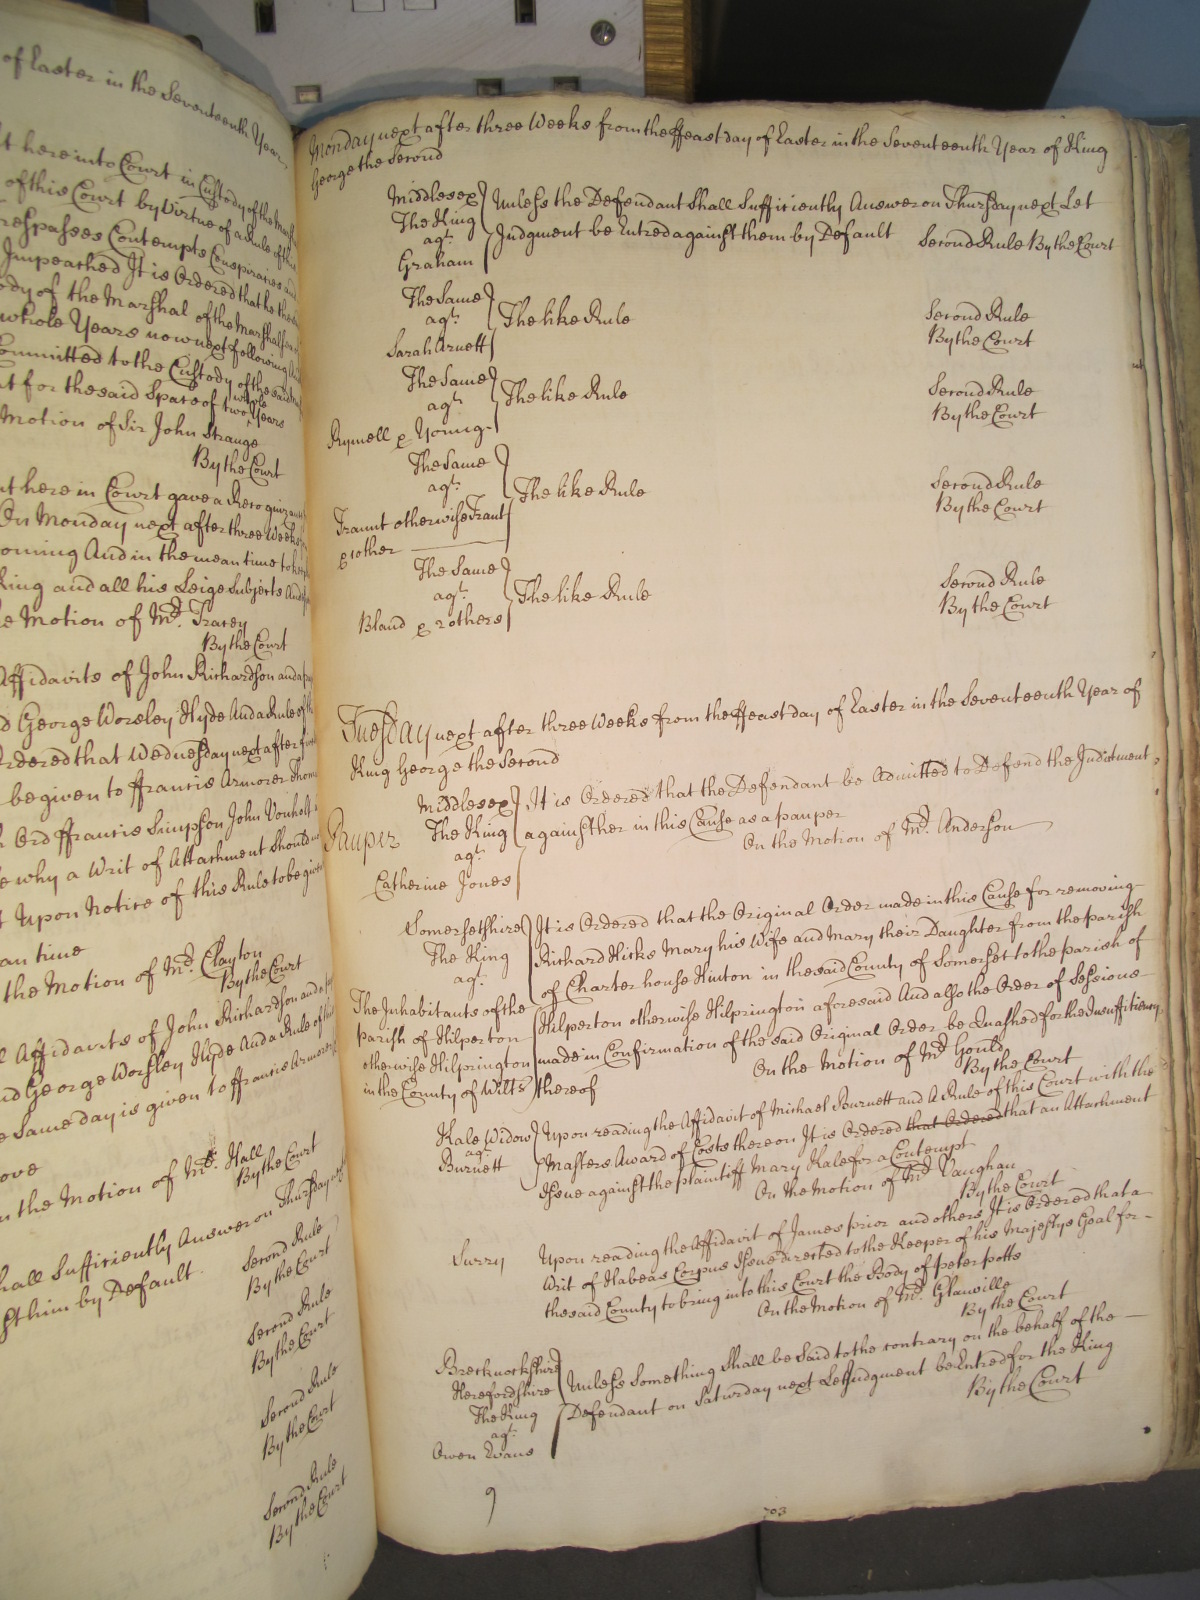 of Easter in the Seventeenth Year
here into Court in Custody of the
of this Court by Virtue of a Rule of this
Trespasses Contempts Conspiracies and
Impeached It is Ordered that he
of the Marshal of the
whole Years now next following
Committed to the Custody of the said
for the said Space of two whole Years
Motion of Sir John Strange
By the Court
here in Court gave a Recognizance
On Monday next after three Weeks
coming And in the mean time to keep
King and all his Leige Subjects And
the Motion of Mr. Tracey
By the Court
Affidavits of John Richardson and
George Worsley Hyde And a Rule of
Ordered that Wednesday next after
be given to ffrancis Armorer
Ord ffrancis Simpson John
why a Writ of Attachment Should
Upon Notice of this Rule to be given
time
the Motion of Mr. Clayton
By the Court
Affidavits of John Richardson and
and George Worsley Hyde And a Rule of this
Same day is given to ffrancis Armorer
on the Motion of Mr. Hall
By the Court
shall Sufficiently Answer on Thursday next
him by Default
Second Rule
By the Court
Second Rule
By the Court
Second Rule
By the Court
Second Rule
By the Court
Monday next after three Weeks from the ffeast day of Easter in the Seventeenth Year of King
George the Second
Middlesex Unless the Defendant Shall Sufficiently Answer on Thursday next Let
The King Judgment be Entred against them by Default Second Rule By the Court
agt.
Graham
The Same
agt. The like Rule Second Rule
Sarah Arnett By the Court
The Same
agt. The like Rule Second Rule
Rymell & Young By the Court
The Same
agt. The like Rule Second Rule
Traunt otherwise Trant By the Court
& other
The Same
agt. The like Rule Second Rule
Bland & 2 others By the Court
Tuesday next after three Weeks from the ffeast day of Easter in the Seventeenth Year of
King George the Second
Middlesex It is Ordered that the Defendant be Admitted to Defend the Indictment
Pauper The King against her in this Cause as a pauper
agt. On the Motion of Mr. Anderson
Catherine Jones
Somersetshire It is Ordered that the Original Order made in this Cause for removing
The King Richard Hicks Mary his Wife and Mary their Daughter from the parish
agt. of Charter house Hinton in the said County of Somerset to the parish of
The Inhabitants of the Hilperton otherwise Hilprington aforesaid And also the Order of Sessions
parish of Hilperton made in Confirmation of the said Original Order be Quashed for the Insufficiency
otherwise Hilprington thereof On the Motion of Mr. Gould
in the County of Wilts By the Court
Kale Widow Upon reading the Affidavit of Michael Burnett and A Rule of this Court with the
agt. Masters Award of Costs thereon It is Ordered that Ordered that an Attachment
Burnett Issue against the plaintiff Mary Kale for a Contempt
On the Motion of Mr. Vaughan
By the Court
Surry Upon reading the Affidavit of James prior and others It is Ordered that a
Writ of Habeas Corpus Issue directed to the Keeper of his Majestys Goal for
the said County to bring into this Court the Body of peter potts
On the Motion of Mr. Glanville
By the Court
Brecknockshire Unless Something Shall be Said to the contrary on the behalf of the
Herefordshire Defendant on Saturday next Let Judgment be Entred for the King
The King By the Court
agt.
Owen Evans
9
703